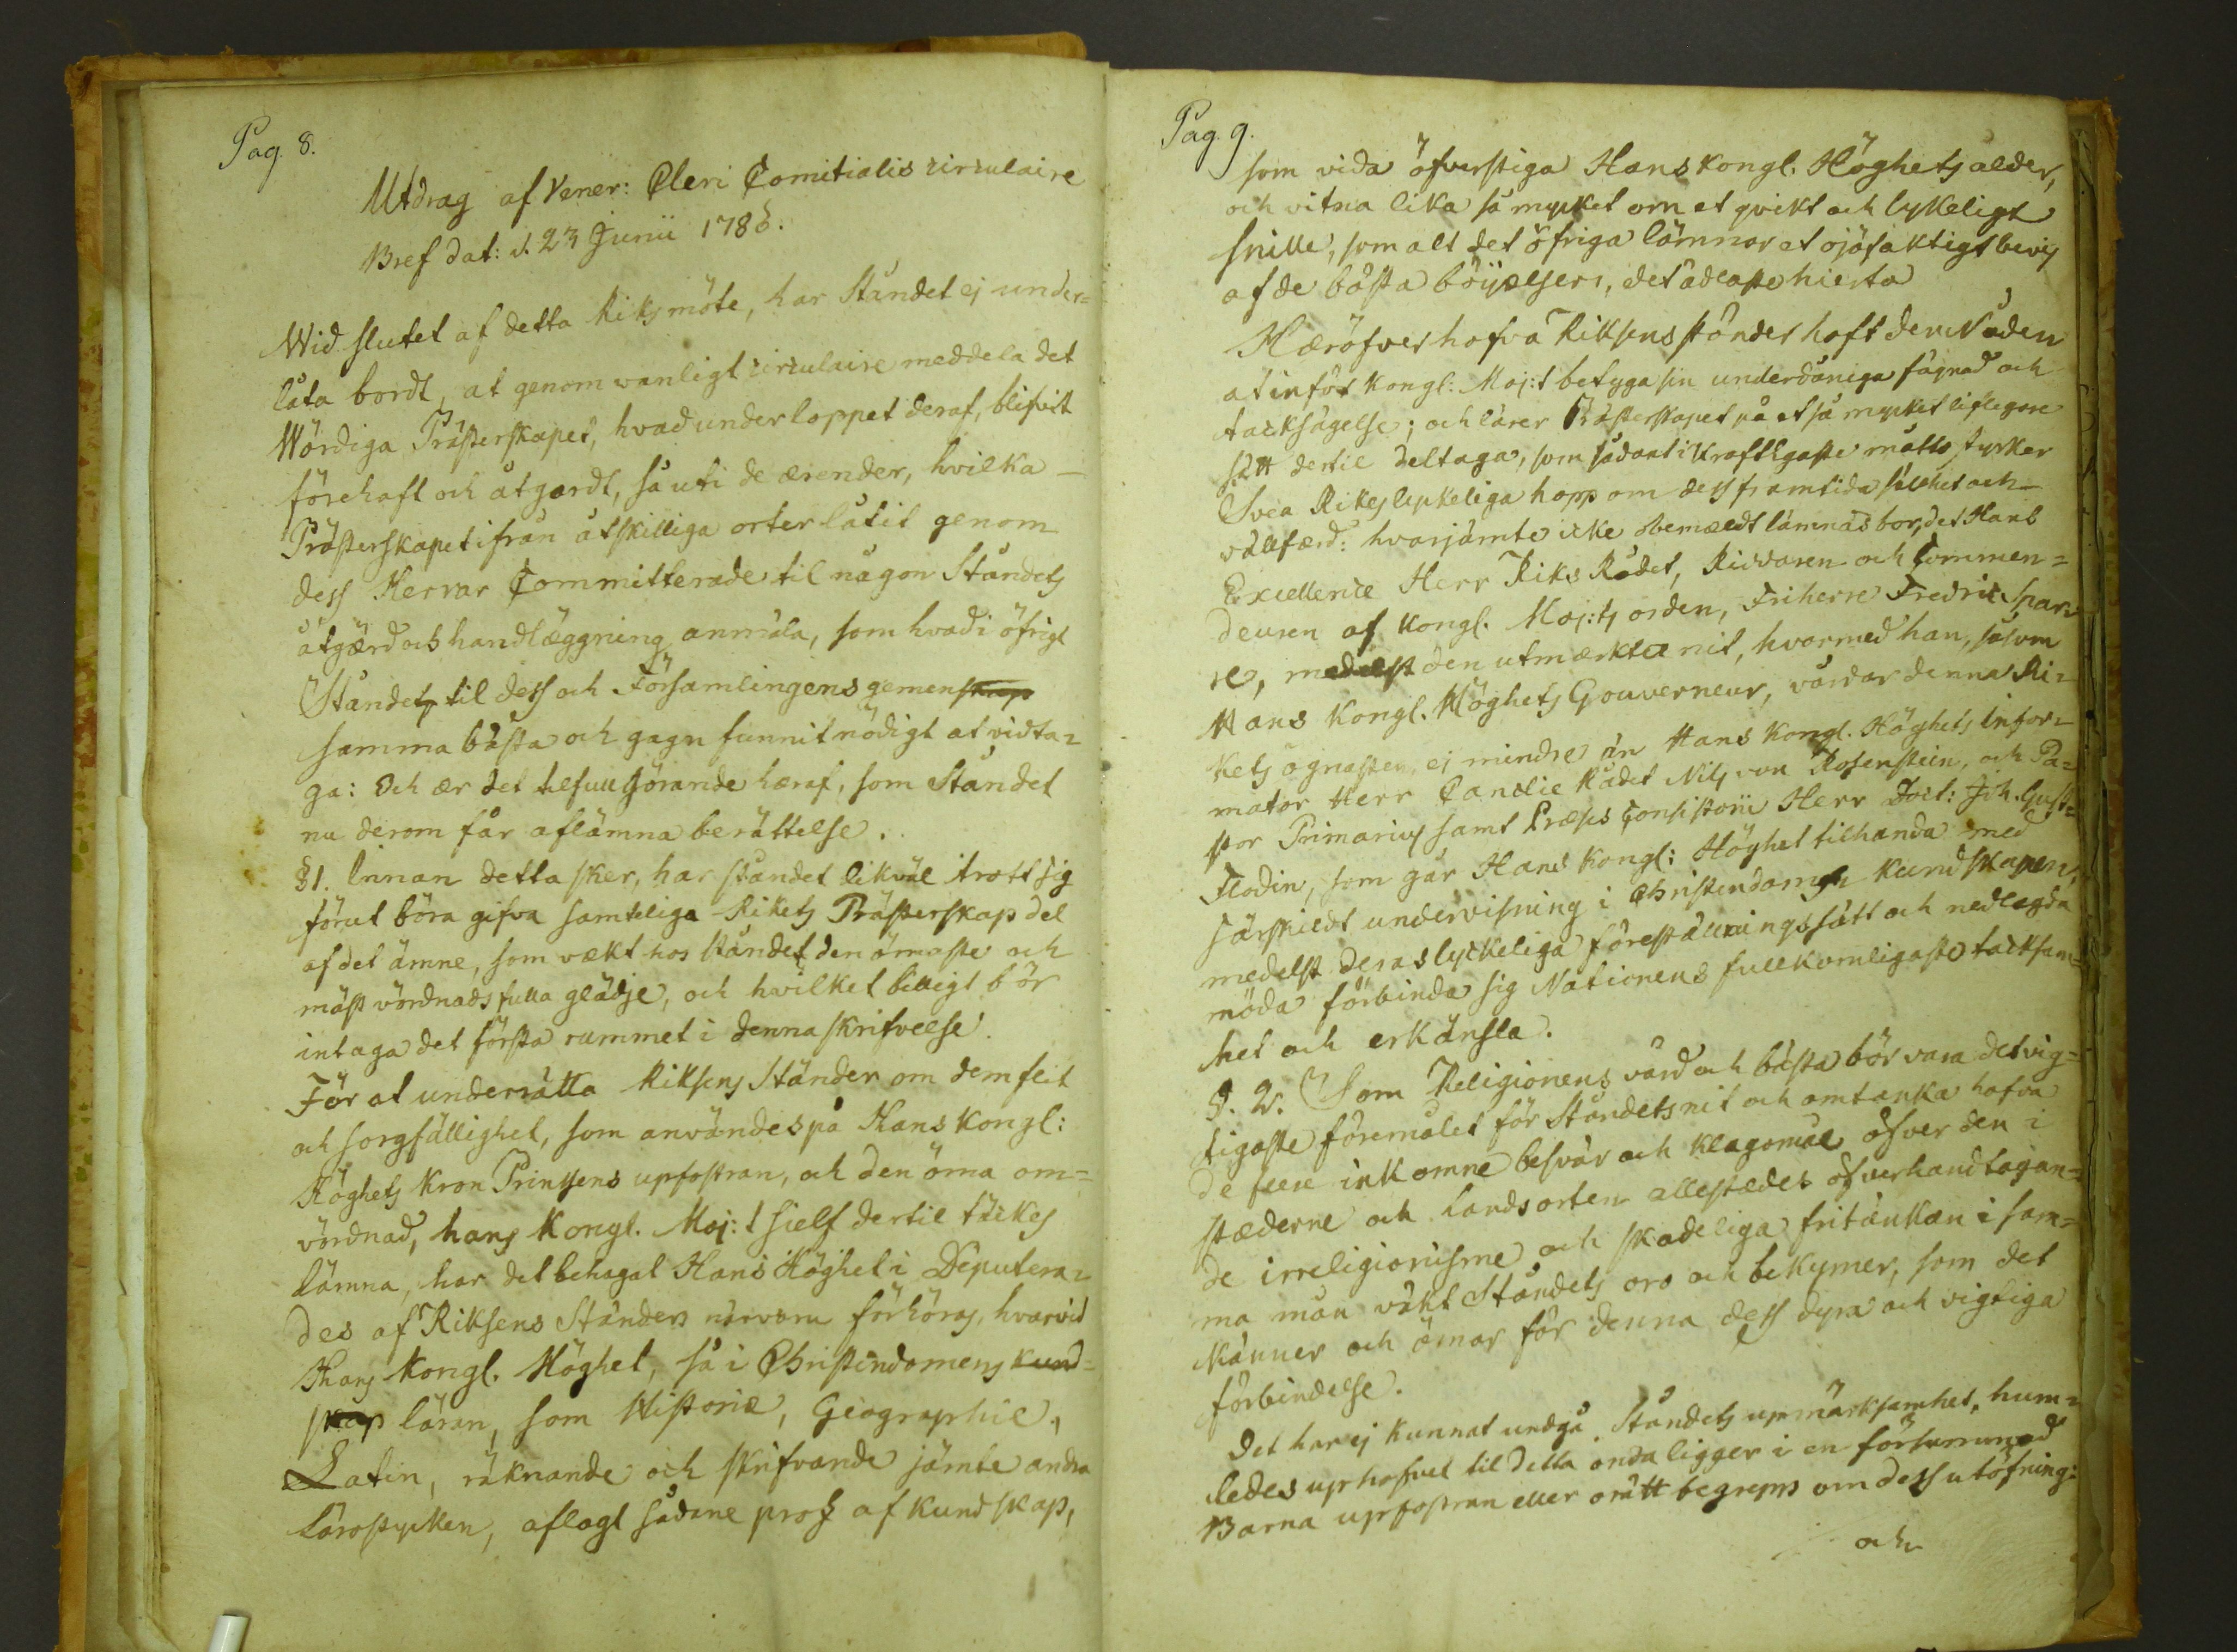 Pag. 8.
Utdrag af Vener: Cleri Comitialis circulaire
Bref dat: d. 23 Junii 1786.
Wid slutet af detta Riksmöte, har Ståndet ej under=
låta bordt, at genom wanligt circulaire meddela det
Wördiga Prästerskapet, hvad under loppet deraf, blifvit
förehaft och åtgordt, så uti de ærender, hvilka
Prästerskapet ifrån åtskilliga orter låtit genom
dess Herrar Committerade til någon Ståndets
åtgærd och handläggning anmäla, som hvad i öfrigt
Ståndet til dess och Församlingens gemenskap
samma bästa och gagn funnit nödigt at vidta=
ga: Och ær det tilfullgörande hæraf, som Ståndet
nu derom får aflämna berättelse.
§1. Innan detta sker, har ståndet likväl trott sig
förut böra gifva samteliga Rikets Prästerskap del
af det ämne, som vækt hos Ståndet den ömaste och
mäst vördnadsfulla glädje, och hvilket billigt bör
intaga det första rummet i denna skrifvelse.
För at underrätta Riksens Ständer om dem flit
och sorgfällighet, som användes på Hans Kongl:
Höghets Kron Printsens upfostran, och den öma om=
vördnad, hans Kongl. Maj:t sielf dertil täckes
lämna, har det behagat Hans Höghet i Deputera=
des af Riksens Ständers närvaru förhöras, hvarvid
Hans Kongl. Höghet, så i Christendomens kund=
skap läran, som Historie, Geographie,
Latin, räknande och skrifvande jämte andra
Lärostycken, aflagt sådane prof af kundskap,
Pag. 9.
som vida öfverstiga Hans Kongl. Höghets ålder,
och vitna lika så mycket om et qvikt och lykeligt
snille, som alt det öfriga lämnar et ojäfaktigt bevis
af de bästa böijelser, det ädlaste hierta
Hæröfver hafva Riksens ständer haft den Nåden
at inför Kongl: Maj:t betyga sin underdåniga fägnad och
tacksägelse; och lärer Prästerskapet på et så mycket lifligare
sätt dertil deltaga, som sådant i kraftigaste måtto styrker
Svea Rikes lyckeliga hopp om dess framtida sälhet och
vällfærd: hvarjämte icke obemældt lämnas bor, det Hans
Excellence Herr Riks Rådet, Riddaren och Commen=
deuren af Kongl. Maj:ts orden, Friherre Fredric Spar=
re, medelst den utmærkta nit, hvarmed han, såsom
Hans Kongl. Höghets Gouverneur, vårdar denna Ri=
kets ögnasten, ej mindre än Hans Kongl. Höghets Infor=
mator Herr Canclie Rådet Nils von Rosenstein, och Pa=
stor Primarius samt Præses Consistorii Herr Doct: Joh. Gust=
Flodin, som går Hans Kongl: Höghet tilhanda med
särskildt undervisning i Christendoms kundskapen,
medelst deras lyckeliga föreställningssätt och nedlagda
möda förbinda sig Nationens fullkomligaste tacksam=
het och erkänsla.
§. 2. Som Religionens vård och bästa bör vara det vig=
tigaste föremålet för Ståndets nit och omtanka hafva
de flere inkomne besvär och klagomål öfver den i
stæderne och Landsorten allestædes öfverhandtagan=
de irreligionisme och skadeliga fritänkan i sam=
ma mån väkt Ståndets oro och bekymer, som det
känner och ömar för denna dess dyra och vigtiga
förbindelse.
Det har ej kunnat undgå Ståndets upmärksamhet, huru=
ledes uphofvet til detta onda ligger i en försummad
Barna upfostran eller orätt begrepp om dess utöfning:
och